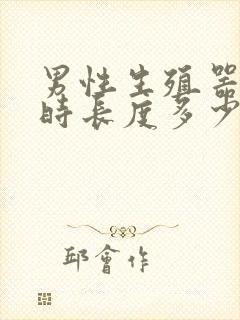 男性生殖器
時長度多少
邱會作